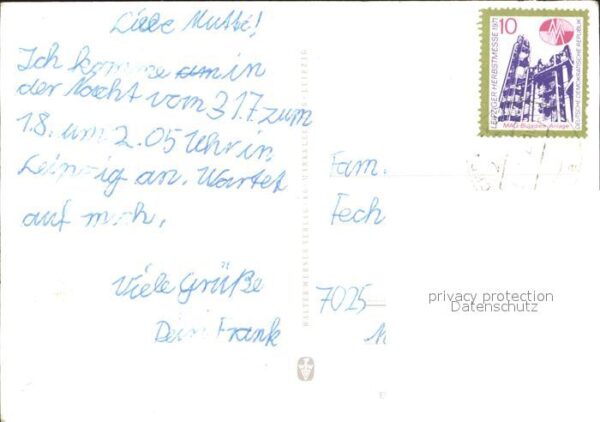 Liebe Mutti!
Ich komme in
der Nacht vom 31.7 zum
1.8. um 2.05 Uhr in
Leipzig an. Wartet
auf mich.
Viele Grüße
Dein Frank
LEIPZIGER HERBSTMESSE 1971
10
DEUTSCHE DEMOKRATISCHE REPUBLIK
Fam.
Fech
7025
privacy protection
Datenschutz